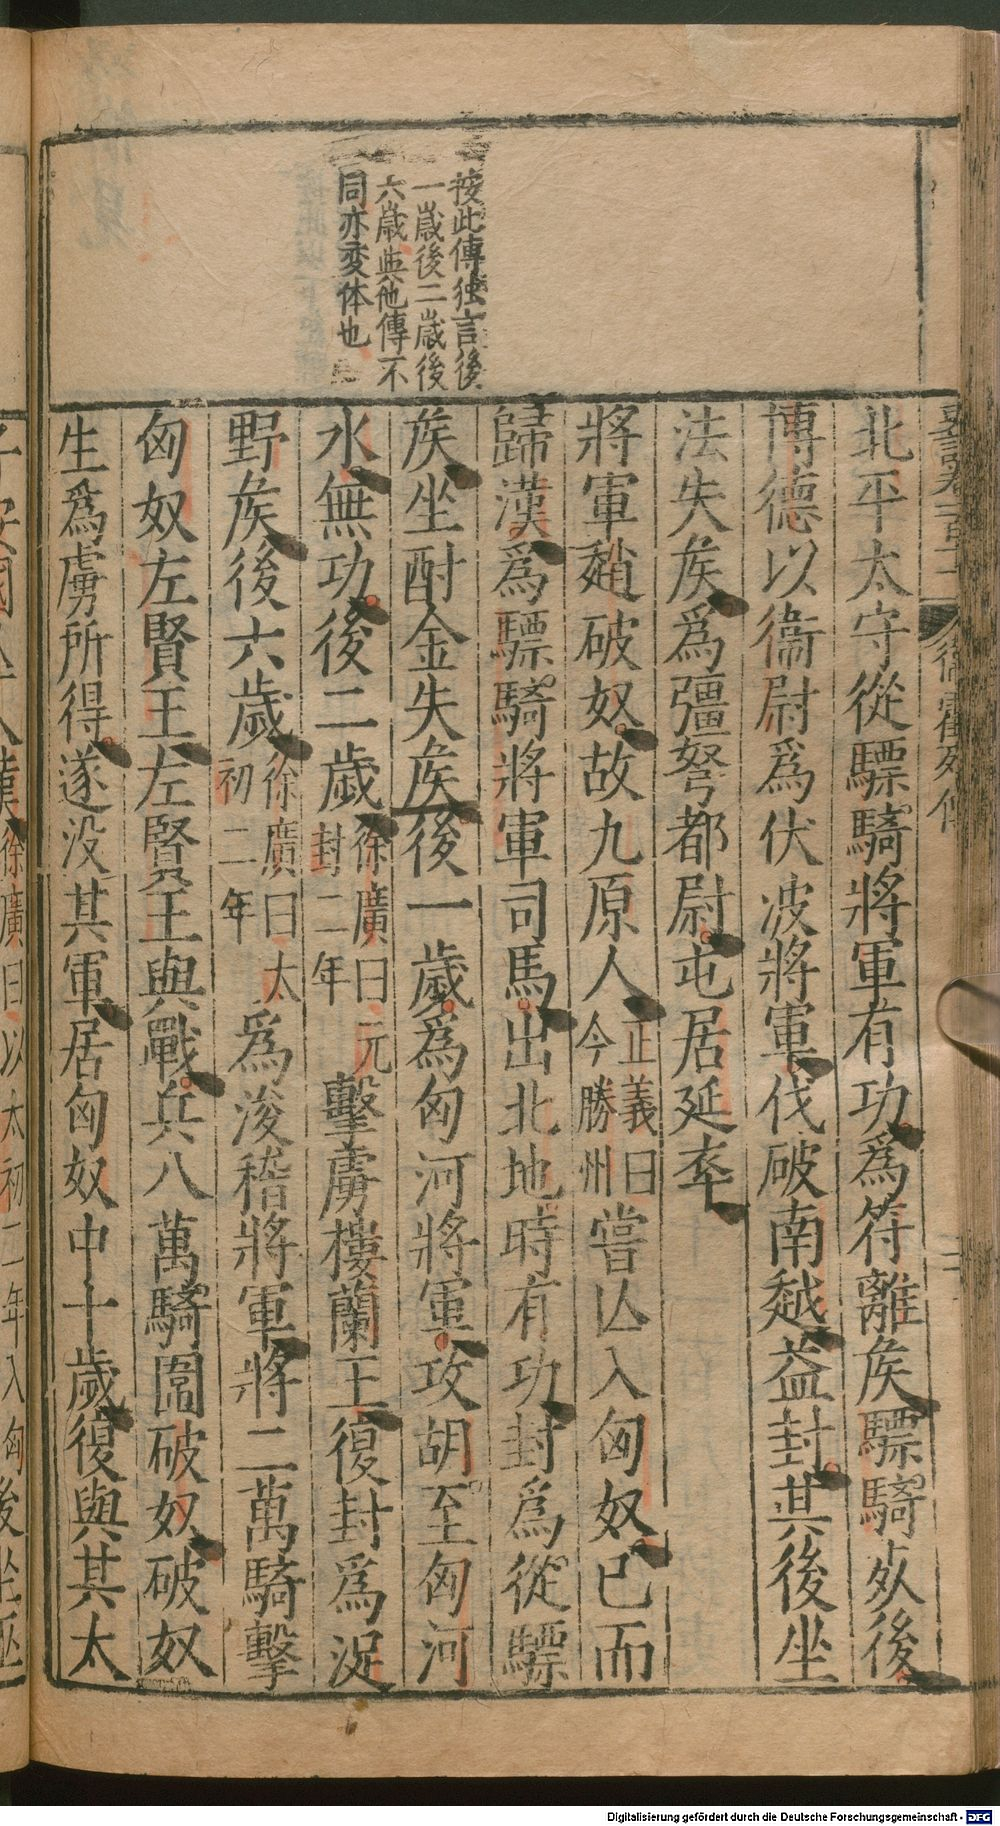 按此傳独言後
一嵗後二嵗後
六嵗與他傳不
同亦变体也
北平太守從驃騎將軍有功爲符離矦驃騎死後
博德以衞尉爲伏波將軍伐破南越益封其後坐
法失矦爲彊弩都尉屯居延卒
將軍趙破奴故九原人正義曰今勝州嘗亾入匈奴已而
歸漢爲驃騎將軍司馬出北地時有功封爲從驃
矦坐酎金失矦後一歲爲匈河將軍攻胡至匈河
水無功後二歲徐廣曰元封二年擊虜樓蘭王復封爲浞
野矦後六歲徐廣曰太初二年爲浚稽將軍將二萬騎擊
匈奴左賢王左賢王與戰兵八萬騎圍破奴破奴
生爲虜所得遂没其軍居匈奴中十歲復與其太
子安國亾入漢徐廣曰以太初二年入匈後坐巫
衞霍列傳
Digitalisierung gefördert durch die Deutsche Forschungsgemeinschaft - DFG